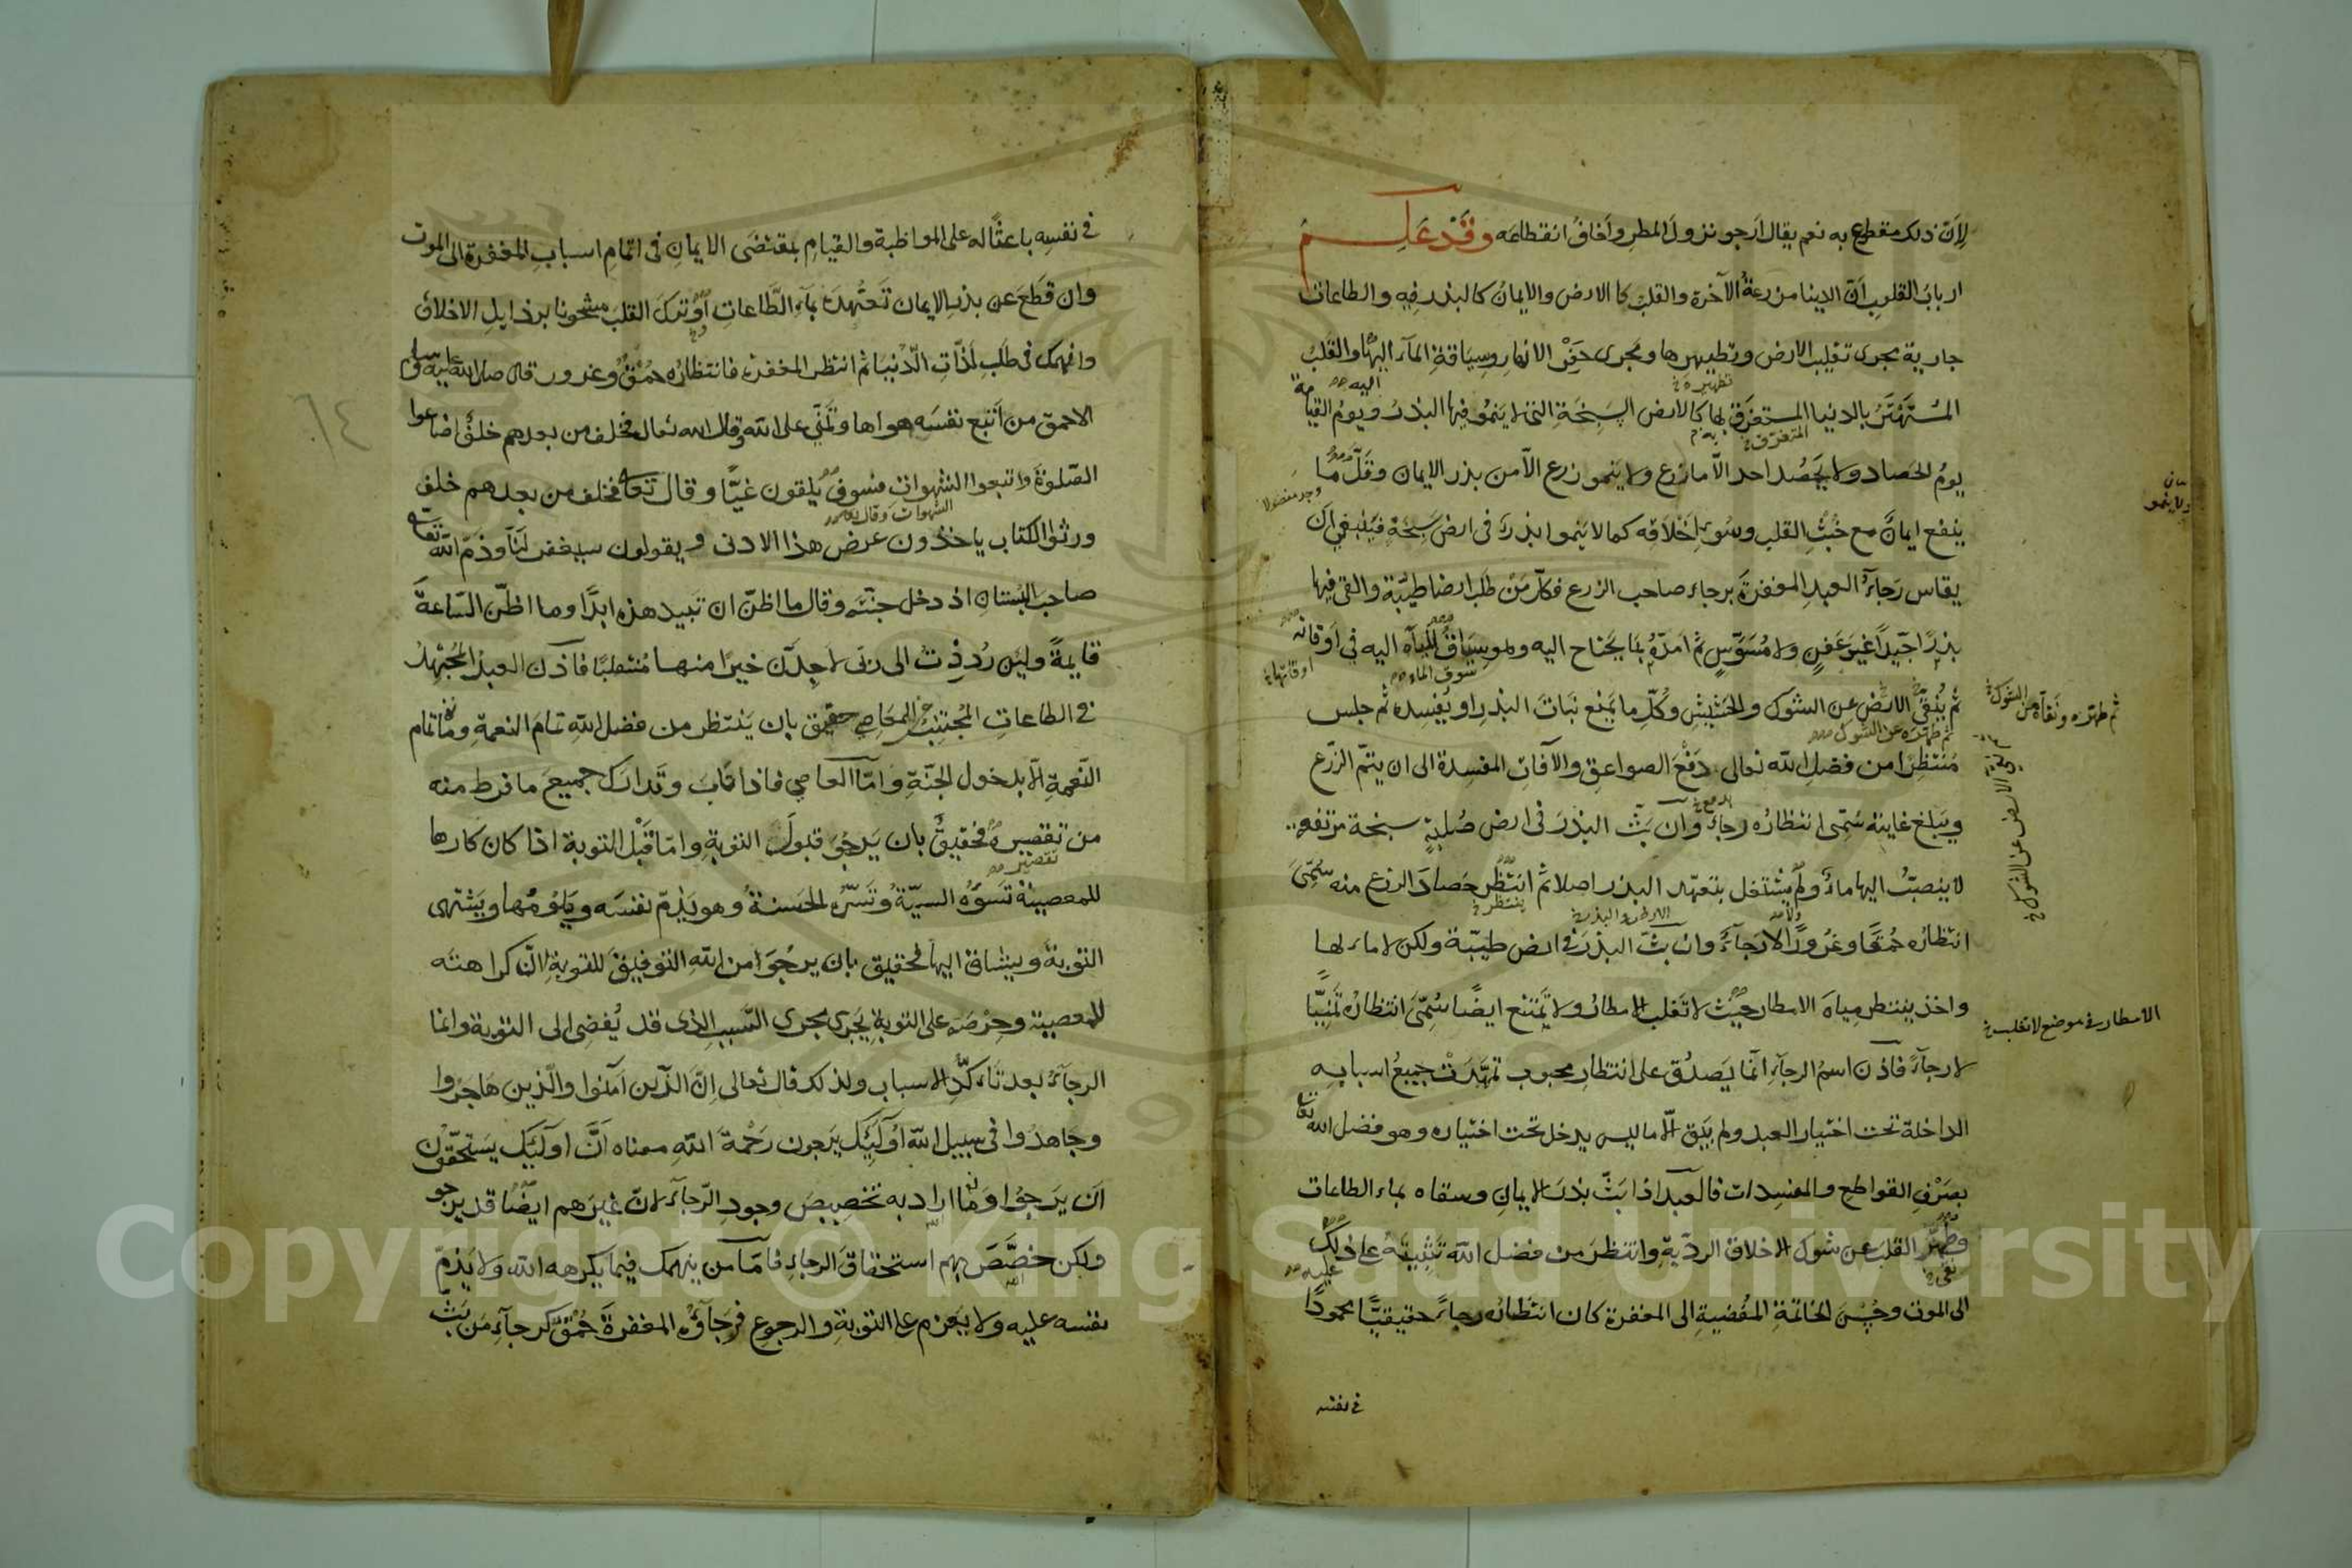 لِاَنّ ذلك مقطوع به نعم يقال اَرجو نزولَ المطرِ واَخافُ انقطاعَه وقَدْ عَلِمَ
اربابُ القلوبِ اَنّ الدينا مزرعةُ الآخرة والقلبَ كالارض والايمانَ كالبذر فِيهِ والطاعات
جارية مجرى تقليب الارض وتطهيرها ومَجرى حَفْرِ الانهارِ وسِيَاقةِ المآء اليها والقلبُ
المُسْتَهْتَرُ بالدنيا المستغرق بها كالارض السَبِخَةِ التى لا يَنمُو فيها البذرُ ويومُ القيامة
يومُ الحَصاد ولا يَحصُد احد الّا مازرع ولا يَنمو زرع الّا من بذر الايمان وقَلّ ما
ينفع ايمانٌ مع خُبْثِ القلب وسُوءِ اَخْلَاقِه كما لا يَنموا بذرٌ فى ارض سَبِخَة فيَنبغى اَن
يقاس رَجآءُ العبدِ المغفرةَ برجاء صاحب الزرع فكلّ مَنْ طَلَب ارضا طيّبة والقى فيها
بذرًا جَيّدًا غيرَ عَفِنٍ ولا مُسَوّسٍ ثم اَمدّهُ بمَا يحَتاج اليه وهو سِيَاقُ المِآء اليه فى اَوقاته
ثم يُنَقّى الارضَ عن الشوك والحَشيشِ وكُلِّ ما يَمنع نَبَاتَ البذرِ او يُفسِده ثم جلس
مُنتظِرًا من فضلِ الله تعالى دَفْعَ الصواعق والآفاتِ المفسِدة الى ان يتمّ الزّرع
ويَبلغ غايتَه سُمّى انتظاره رجاءً وان بَثّ البذرَ فى ارض صُلبةٍ سبخة مرتفعة
لا ينصبّ اليها ماءٌ ولم يشتغل بتعهّد البذر اصلا ثم انتَظر حَصادَ الزرع منه سُمّىَ
انتظاره حُمقًا وغُرورًا لا رَجآءً وان بثّ البذرَ فى ارض طيّبة ولكن لا ماء لها
واخذ ينتظر مِياهَ الامطار حيث لا تَغلب الامطارُ ولا تمَتنع ايضًا سُمِّىَ انتظارُه تَمَنِّيًا
لا رجآءً فاذن اسمُ الرجآءِ انّما يَصدُق على انتظارِ محبوب تمهّدتْ جميعُ اسبابِه
الداخلة تحت اختيار العبد ولم يَبق الّا ماليس يدخل تحت اختياره وهو فضل الله تعالى
بصَرْفِ القواطع والمفسِدات فالعبد اذا بَثّ بذرَ الايمانِ وسقاه بماء الطاعات
وطهّر القلبَ عن شوك الاخلاق الرديّةِ وانتظرَ من فضل الله تَثْبِيتَهُ على ذلك
الى الموت وحُسْنَ الخاتمةِ المفُضيةِ الى المغفرة كان انتظارُه رجاءً حقيقيًّا محمودًا
فى نفسه
تطهيره
اليه
المتفرق
سوق الماء
اوقاتها
ثم طهّره عن الشوك
ثم طهّره ونقّاه من الشوك
ينتظر
عليه
نقى
ولا ينمو
الامطار فى موضع لا تغلب
فى نفسِه باعثًا له على المواظبة والقيامِ بمقتضَى الايمانِ فى اتمامِ اسبابِ المغفرة الى الموت
وان قَطَعَ عن بذرِ الايمان تَعَهُّدَهُ بمآءِ الطّاعاتِ اَوْ تركَ القلبَ مشحونا برذايلِ الاخلاق
وانهمك فى طَلبِ لذّاتِ الدّنْيَا ثم انتظر المغفرةَ فانتظارُه حُمْقٌ وغرور قال صلى الله عليه وسلم
الاحمق من اَتبع نفسَه هواها وتَمَنّى على الله وقال الله تعالى فخلف من بعدهم خلفٌ اضاعوا
الصّلوةَ واتبعوا الشهوات فسوف يلقون غيًّا وقال تعالى فخلف من بعدهم خلف
الشهوات وقال
ورثوا الكتاب ياخذون عرض هذا الادنى ويقولون سيغفر لَنَا وذَمّ الله تعالى
صاحبَ البُستانِ اذ دخل جنّتَه وقال ما اظنّ ان تَبيد هذه ابدًا وما اظنّ السّاعةَ
قايمةً ولئن رُدِدْتُ الى ربّى لاَجِدَنّ خيرًا منها مُنقلبًا فاذن العبدُ المُجْتهِدُ
فى الطاعاتِ المُجْتنِبُ المعَاصى حقيق بان يَنتظر من فضل اللهِ تمامَ النعمةِ وما تمام
النّعمةِ الّا بدخول الجنّةِ وامّا العاصى فاذا تَابَ وتَدارَك جميعَ ما فرط منه
من تقصيره فحقيقٌ بان يَرجُوَ قبولَ التوبةِ وامّا قَبْلَ التوبة اذا كان كارها
تقصير
للمعصيةْ تَسُوؤه السيّةُ وتَسُرّه الحَسنةُ وهو يَذمّ نفسَه ويَلومُها ويَشتهى
التوبةَ ويشتاق اليها فحقيق بان يرجُوَا من اللهِ التوفيقَ للتوبةِ لانّ كراهتَه
للمعصية وحِرْصَه على التوبةِ يَجرى مجرى السّببِ الذى قد يُفضى الى التوبة وانما
الرجآءُ بعد تَاكُّدِ الاسباب ولذلك قال تعالى اِنّ الذّين اَمَنُوا والّذين هَاجَرُوا
وجَاهدُوا فى سبيل الله اُولَئِكَ يَرجون رَحْمةَ اللهِ معناه اَنَّ اولَئِكَ يستحّقون
اَن يَرجوا وما اراد به تخصيصَ وجودِ الرّجآءِ لانّ غيرَهم ايضًا قد يرجو
ولكن خصَّصَ بهم استحقاقَ الرجاءِ فامّا من ينهمك فيما يكرهه الله ولا يَذمّ
نفسه عليه ولا يَعزم على التوبةِ والرجوعِ فرَجَآؤُه المغفرةَ حُمْقٌ كرجآءِ مَن بَثّ
Copyright © King Saud University